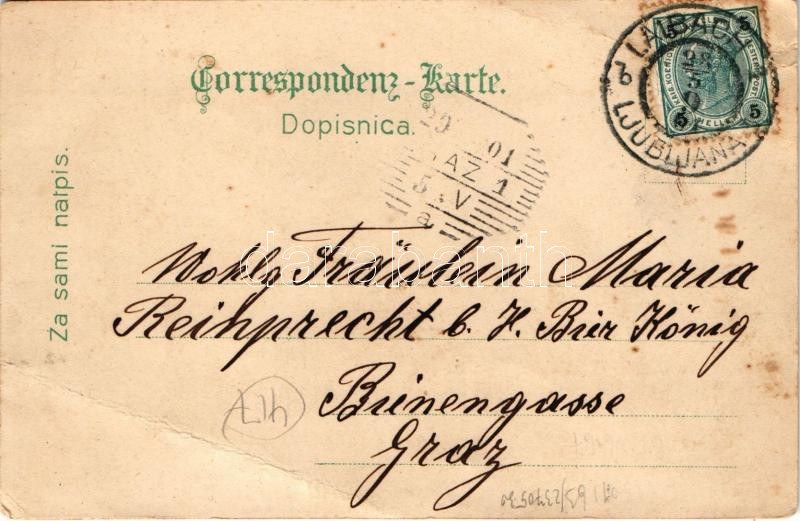 Correspondenz-Karte.
Dopisnica.
Za sami natpis.
LAIBACH
LJUBLJANA
5 5
HELLER
5 5
01
AZ 1
5 V
a
Wohlg Fräulein Maria
Reihprecht b. H. Bür König
Bienengasse
Graz
417
darabanth